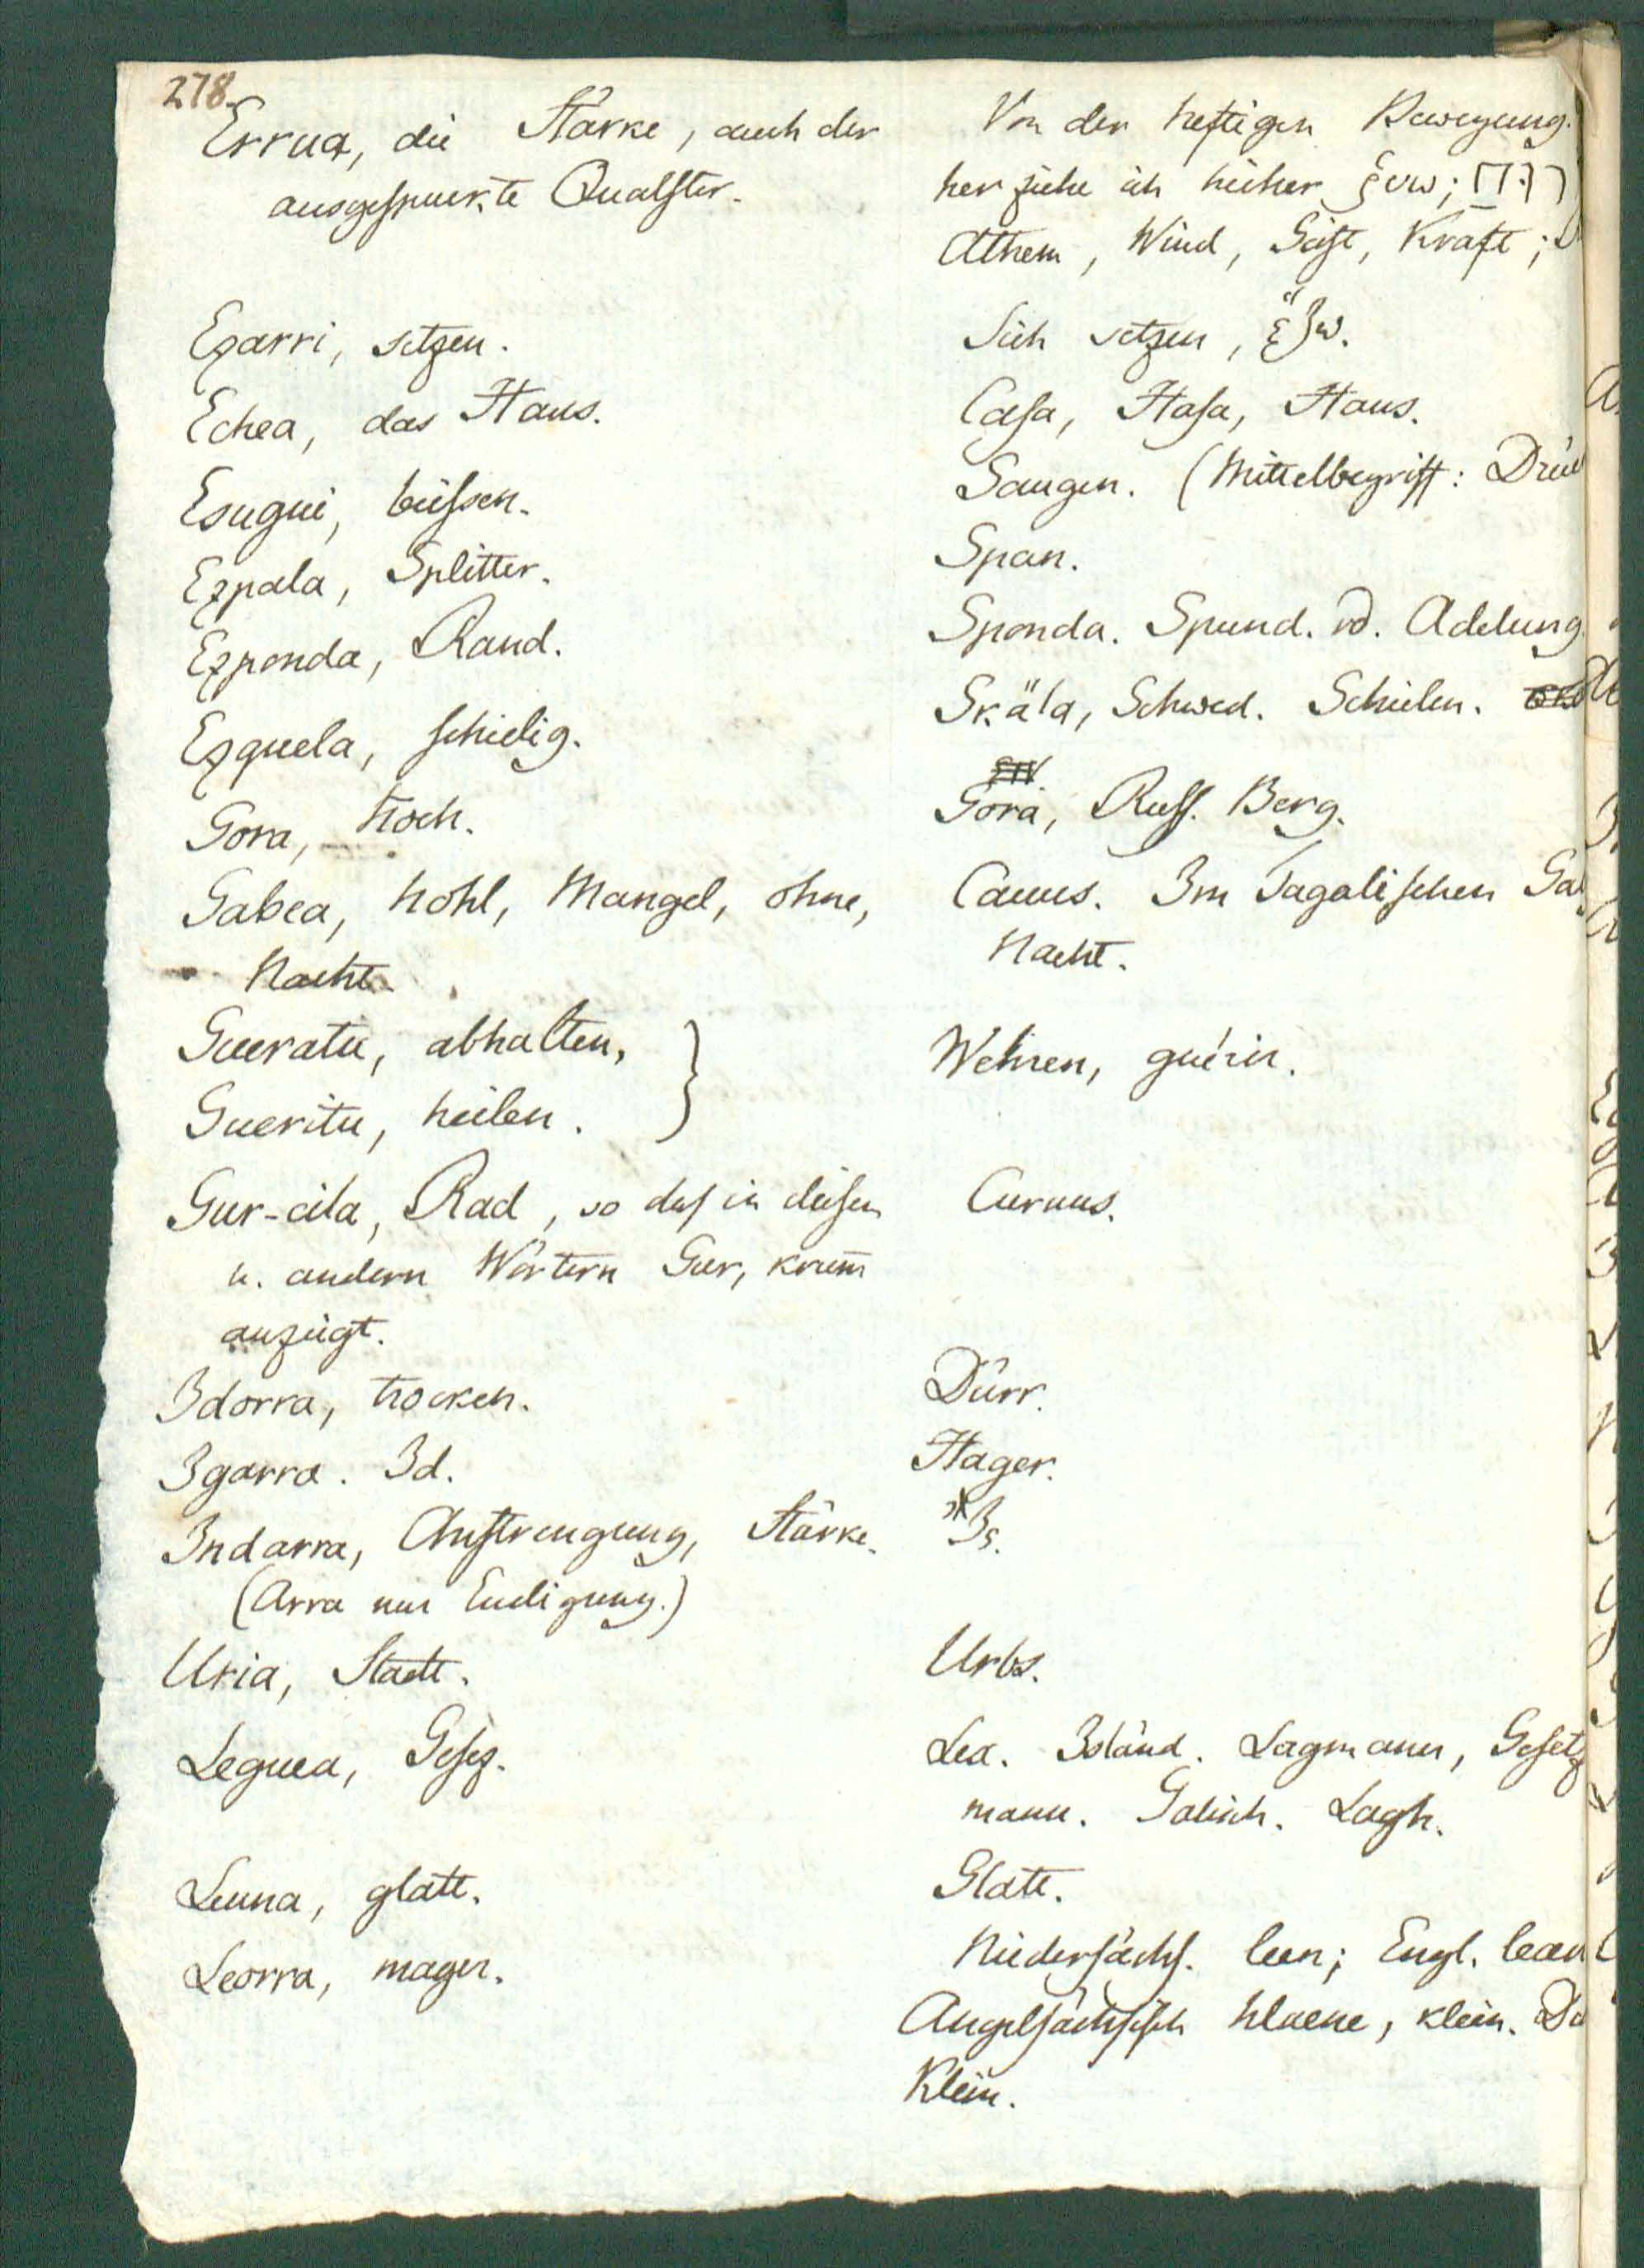 278.
Errua, die Stärke, auch der
ausgespuckte Qualster.
Von der heftigen Bewegung.
her ziehe ich hieher ῥυω; רוח
Athem, Wind, Geist, Kraft;
Ezarri, setzen.
Sich setzen, ἕζω.
Echea, das Haus.
Casa, Hasa, Haus.
Esugui, beissen.
Saugen. (Mittelbegriff: Drü
Ezpala, Splitter.
Span.
Ezponda, Rand.
Sponda. Spund. vd. Adelung.
Ezquela, schielig.
Skäla, Schwed. Schielen.
Gora, hoch.
Gora, Russ. Berg.
Gabea, hohl, Mangel, ohne,
Nacht.
Cauus. Im Tagalischen Ga
Nacht.
Gueratu, abhalten,
Gueritu, heilen.
Wehren, guérir.
Gur-cila, Rad, so daß in diesen
u. andern Wörtern Gur, krum̄
anzeigt.
Curuus.
Idorra, trocken.
Dürr.
Igarra. Id.
Hager.
Indarra, Anstrengung, Stärke.
(Arra nur Endigung.)
*Is.
Uria, Stadt.
Urbs.
Leguea, Gesez.
Lex. Isländ. Lagmann, Gesetz
mann. Galisch. Lagh.
Leuna, glatt.
Glatt.
Leorra, mager.
Niedersächs. leen; Engl. lean
Angelsächsisch hlaene, klein. Da
Klein.